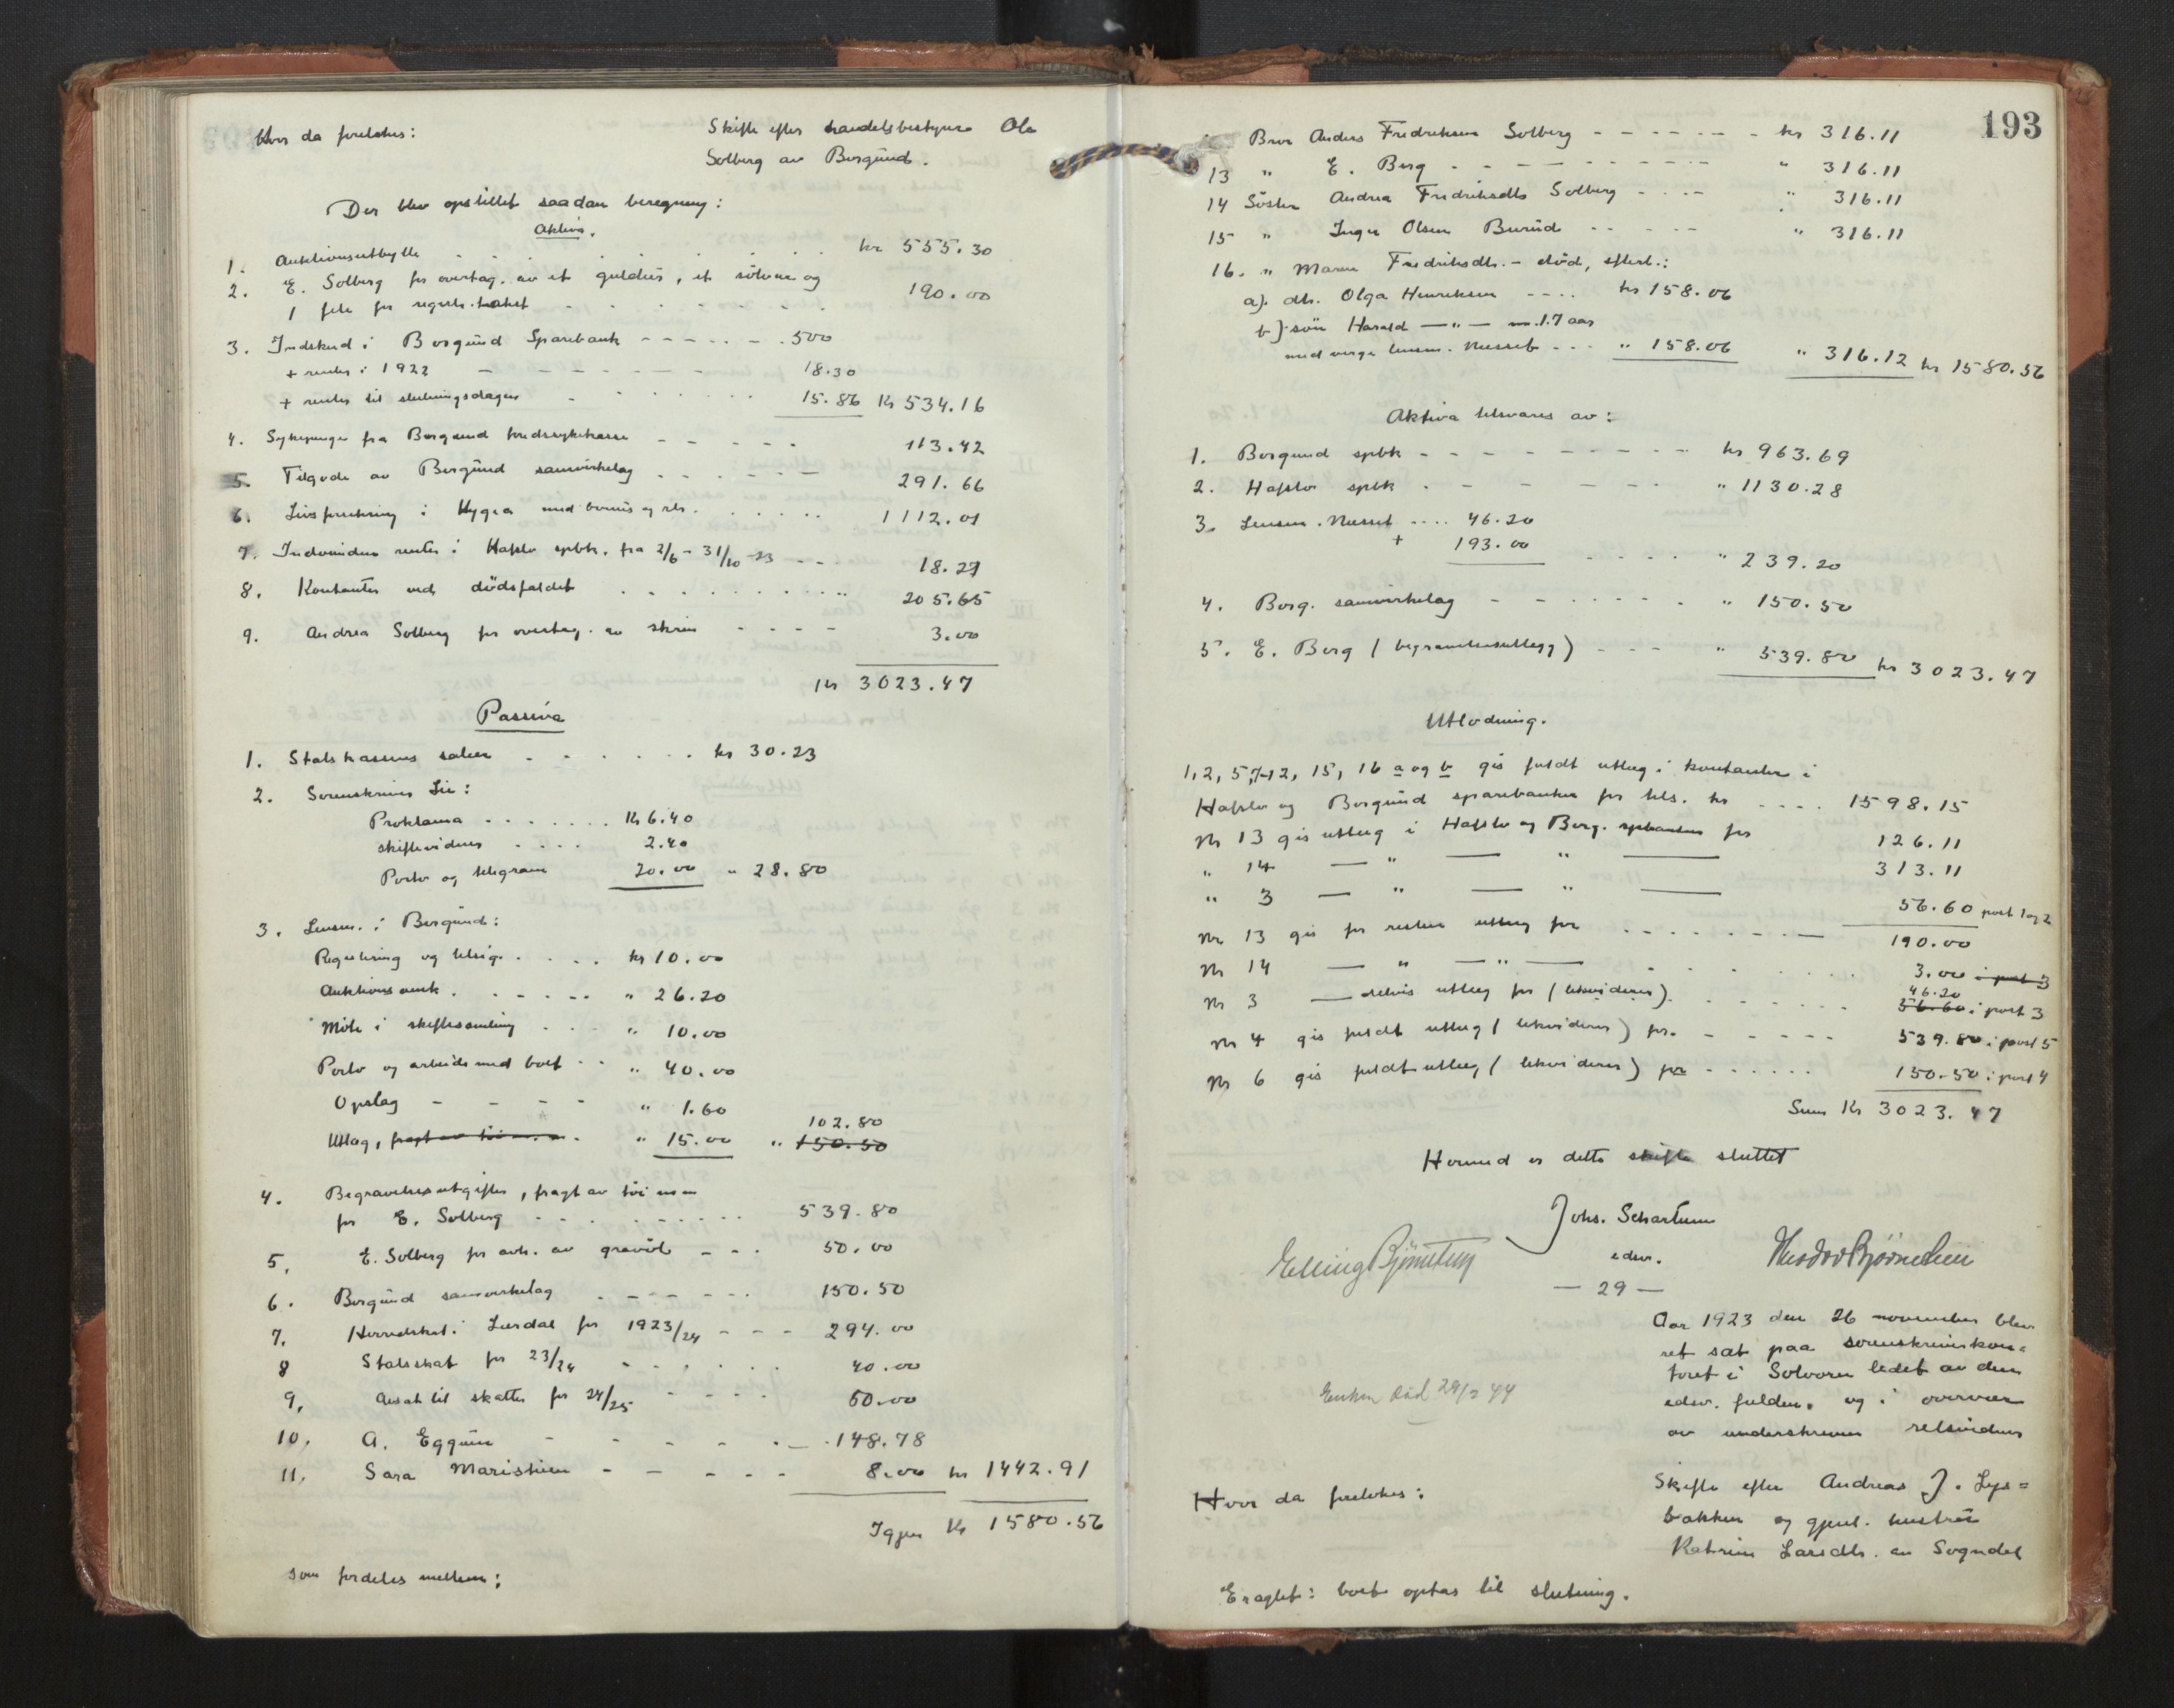 Hvor da foretokes:
Skifte efter handelsbestyrer Ole
Solberg av Borgund.
Der blev opstillet saadan beregning:
Aktiva.
1. Auktionsutbytte . . . . . . kr 555.30
2. E. Solberg for overtag. av et guldur, et sölvur og
1 fele for registr. takst - - - 190.00
3. Indskud i Borgund Sparebank - - - - - 500
+ renter i 1922 - - - - - - 18.30
+ renter til slutningsdagen - - - 15.86 Kr 534.16
4. Sykepenge fra Borgund kredssykekasse - - - - - 113.42
5. Tilgode av Borgund samvirkelag - - - - - - 291.66
6. Livsforsikring i Hygea med bonus og rtr. . . . . . 1112.01
7. Indvundne renter i Hafslo spbk. fra 2/6 - 31/10 -23 - - - 18.27
8. Kontanter ved dödsfaldet . . . . . . . . . " 205.65
9. Andrea Solberg for overtag. av skrin - - - - 3.00
Kr 3023.47
Passiva
1. Statskassens saker - - - - - - kr 30.23
2. Sorenskriver Lie:
Proklama . . . . . . . Kr 6.40
skiftevidner . . . . 2.40
Porto og telegram 20.00 " 28.80
3. Lensm. i Borgund:
Registrering og tilsig. . . . . kr 10.00
Auktions omk. . - - - - - " 26.20
Möte i skiftesamling . . . " 10.00
Porto og arbeide med boet . . " 40.00
Opslag - - - - " 1.60
102.80
Utlæg, fragt av töi m.m. . " 15.00 " 150.50
4. Begravelsesutgifter, fragt av töi m m
for E. Solberg - - . . . . . . 539.80
5. E. Solberg for avh. av gravöl - - . 50.00
6. Borgund samvirkelag . - - - - - 150.50
7. Herredskat i Lærdal for 1923/24 - - - 294.00
8 Statsskat for 23/24 - - - - - 40.00
9. Ansat til skatter for 24/25 - - - - 60.00
10. A. Eggum - - - - - . - . 148.78
11. Sara Maristuen - - - - - 8.00 kr 1442.91
Igjen Kr 1580.56
som fordeles mellem:
193
Bror Anders Fredriksen Solberg - - - - - - - kr 316.11
13 " E. Berg - - - - - - - - - " 316.11
14 Söster Andrea Fredriksdtr Solberg - - - - " 316.11
15 " Inger Olsen Burud - - - - - " 316.11
16. " Maren Fredriksdtr. - död, efterl.:
a). dtr. Olga Henriksen - - - - kr 158.06
b) sön Harald — " — 17 aar
med verge lensm. Musset - - - " 158.06 " 316.12 kr 1580.56
Aktiva tilsvares av:
1. Borgund spbk - - - - - - - - - - kr 963.69
2. Hafslo spbk . - - - - - - " 1130.28
3. Lensm. Musset . . . . 46.20
+ 193.00 . . . . . " 239.20
4. Borg. samvirkelag - - - - - - - " 150.50
5. E. Berg (begravelsesutlegg) - - - " 539.80 kr 3023.47
Utlodning.
1, 2, 5, 7-12, 15, 16 a og b gis fuldt utlæg i kontanter i
Hafslo og Borgund sparebanker for tils. kr . . . . 1598.15
Nr 13 gis utlæg i Hafslo og Borg. spbanker for 126.11
" 14 — " — " — 313.11
" 3 — " — " — 56.60 post 1 og 2
Nr 13 gis for resten utlæg for . - - - - - - - 190.00
Nr 14 — " — " — . . . . . . 3.00 i post 3
46.20
Nr 3 — delvis utlæg for (likviderer) . - - - - - 56.60 i post 3
Nr 4 gis fuldt utlæg (likviderer) for. - - - - - 539.80 i post 5
Nr 6 gis fuldt utlæg (likviderer) for - - - - - - 150.50 i post 4
Sum Kr 3023.47
Hermed er dette skifte sluttet
Johs. Schartum
edsv.
Elling Bjørnetun
Theodor Bjørnetun
— 29 —
Aar 1923 den 26 november blev
ret sat paa sorenskriverkon-
toret i Solvorn ledet av den
edsv. fuldm. og i overvær
av underskrevne retsvidner
Enken död 29/3 44
Hvor da foretokes:
Skifte efter Andreas J. Lys=
bakken og gjenl. hustru
Katrine Larsdtr. av Sogndal
Eragtet: boet optas til slutning.